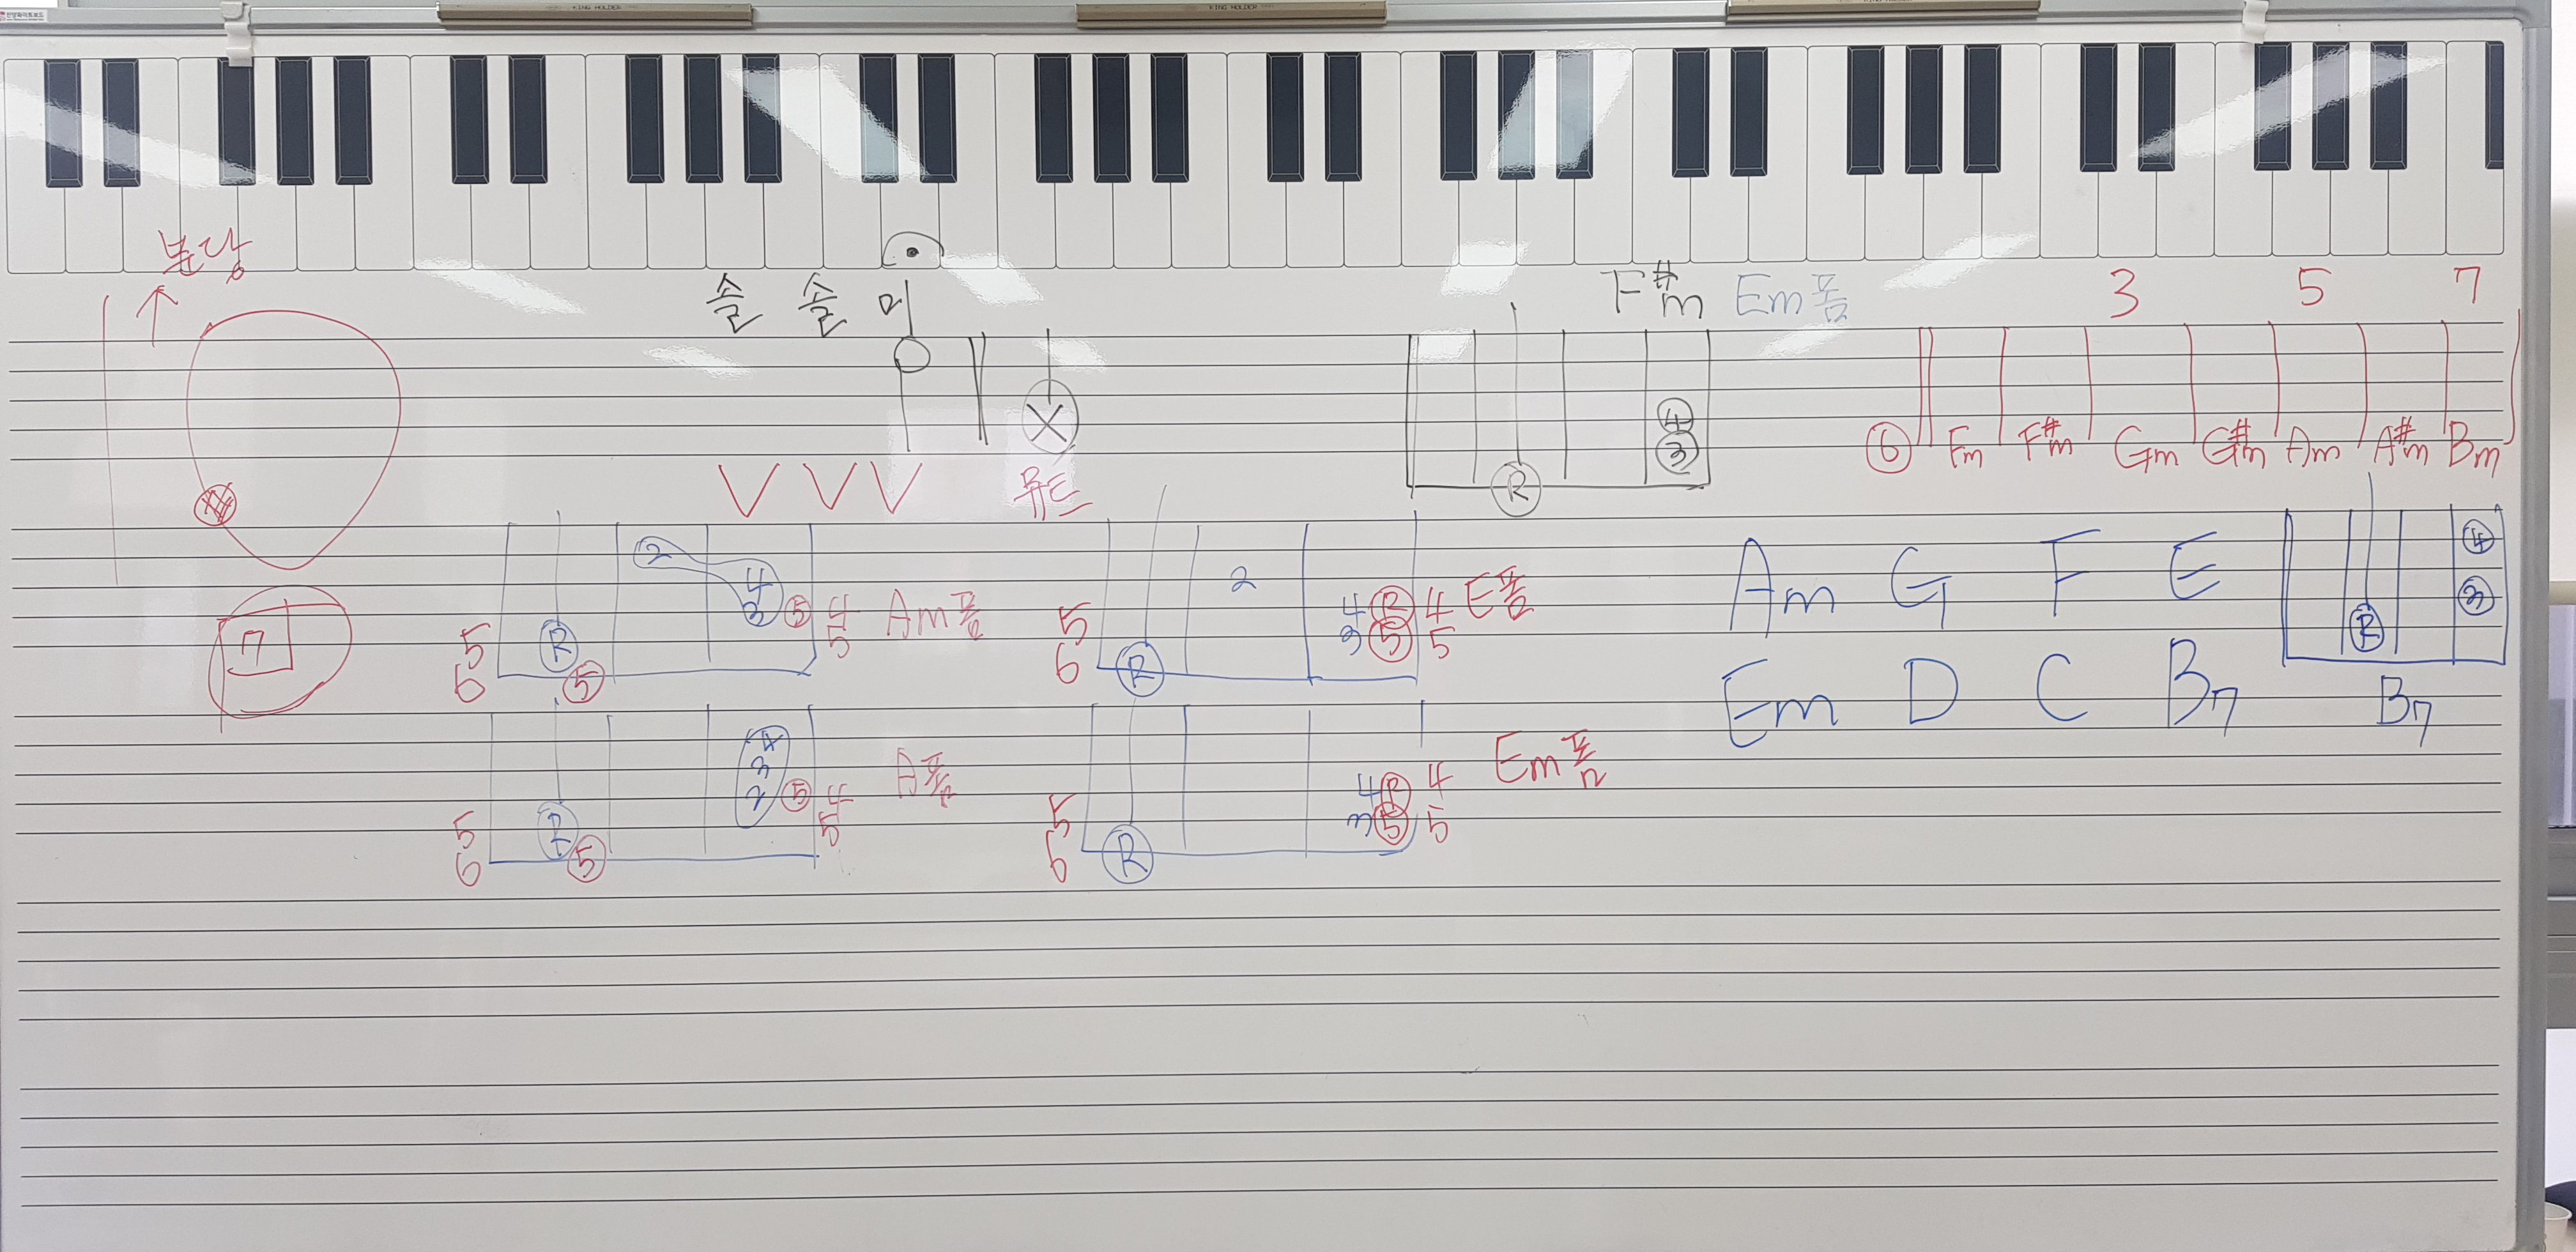 KING HOLDER KING HOLDER KING HOLDER
분당
솔 솔 미
F#m Em폼 3 5 7
X
4
3
R
⑥ Fm F#m Gm G#m Am A#m Bm
V V V 뮤트
2 4 3 ⑤ 4 Am폼
5 R 5
6 ⑤
2 4 R 4 E폼
5 3 ⑤ 5
6 R
Am G F E
4
3
R
7
Em D C B7 B7
4 3 2 ⑤ 4 A폼
5 R 5
6 ⑤
4 R 4 Em폼
5 3 ⑤ 5
6 R